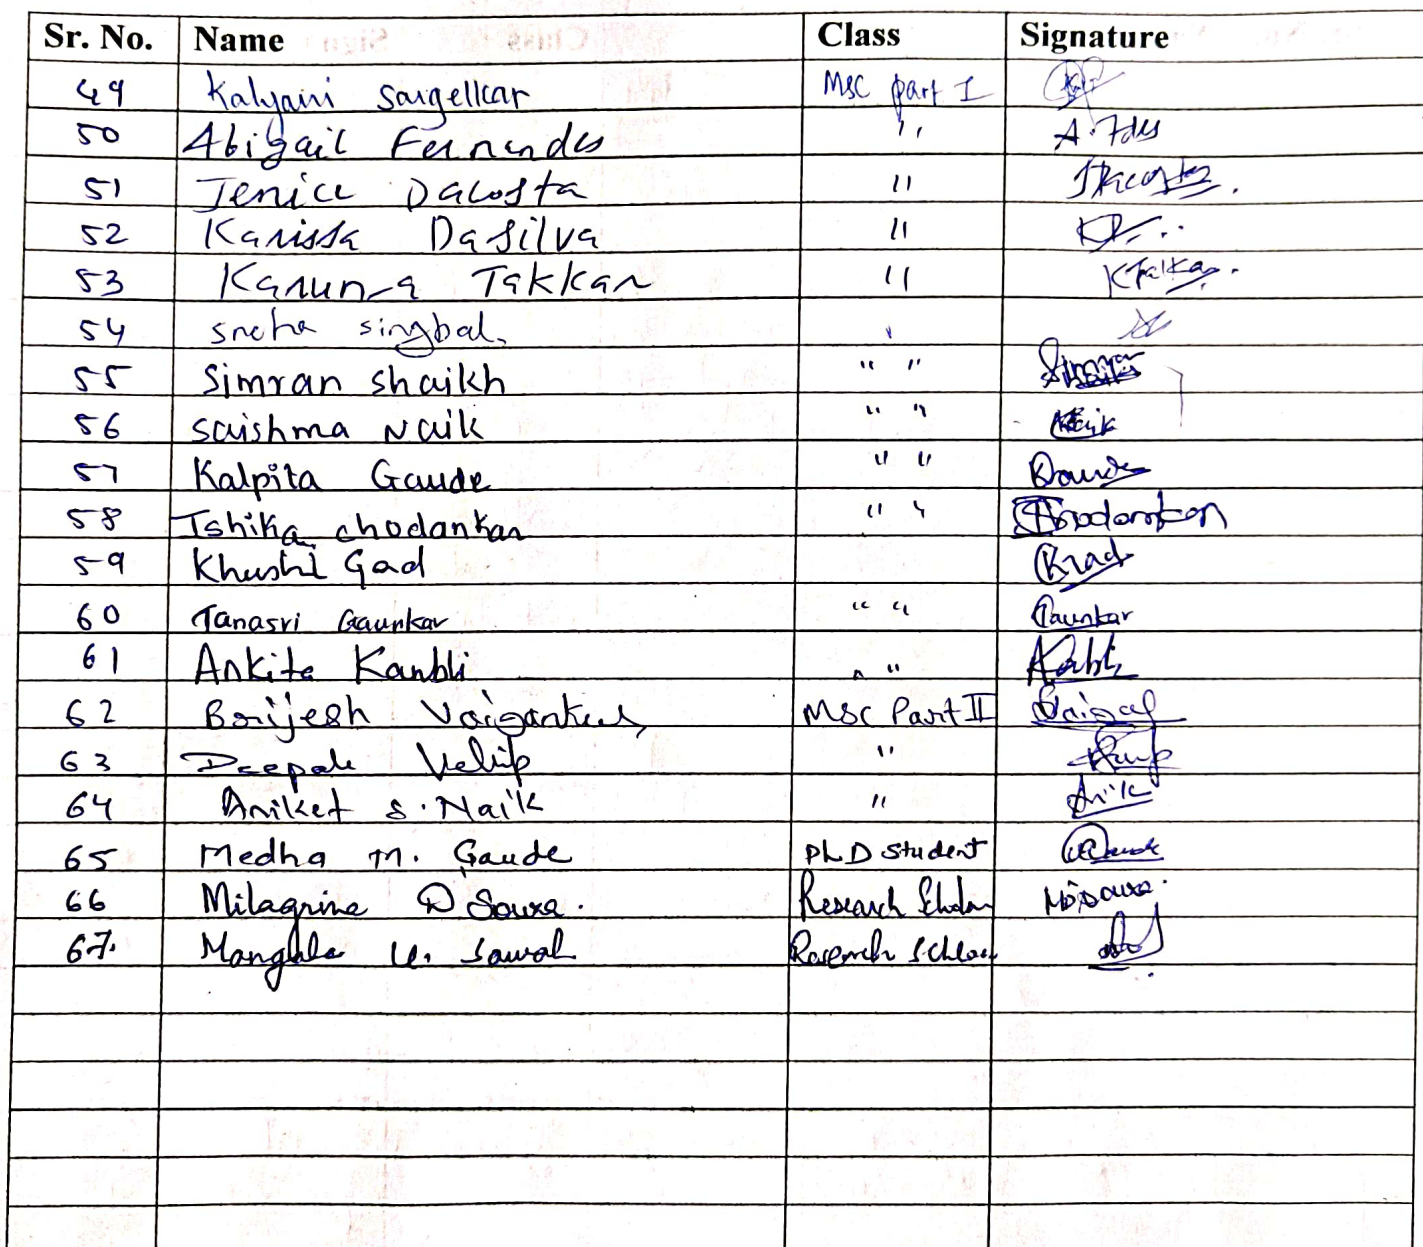 Sr. No. Name Class Signature
49 Kalyani Sangelkar MSC part I
50 Abigail Fernandes ,, A. Fdes
51 Jenice Dacosta 11 JDacosta.
52 Karissa Dasilva 11
53 Karuna Takkar 11 KTakkar.
54 sneha singbal. ,
55 Simran Shaikh " " Simran
56 saishma Naik " " Naik
57 Kalpita Gaude " " Gaude
58 Ishika chodankar " " Chodankar
59 Khushi Gad KGad
60 Tanasri Gaunkar " " Gaunkar
61 Ankita Kambli " " Kambli
62 Brijesh Vaigankar MSC Part II
63 Deepak Velip "
64 Aniket S. Naik " Naik
65 Medha M. Gaude Ph.D Student Gaude
66 Milagrina D'Souza. Research Scholar MDsouza.
67. Mangala U. Sawal Research Scholar